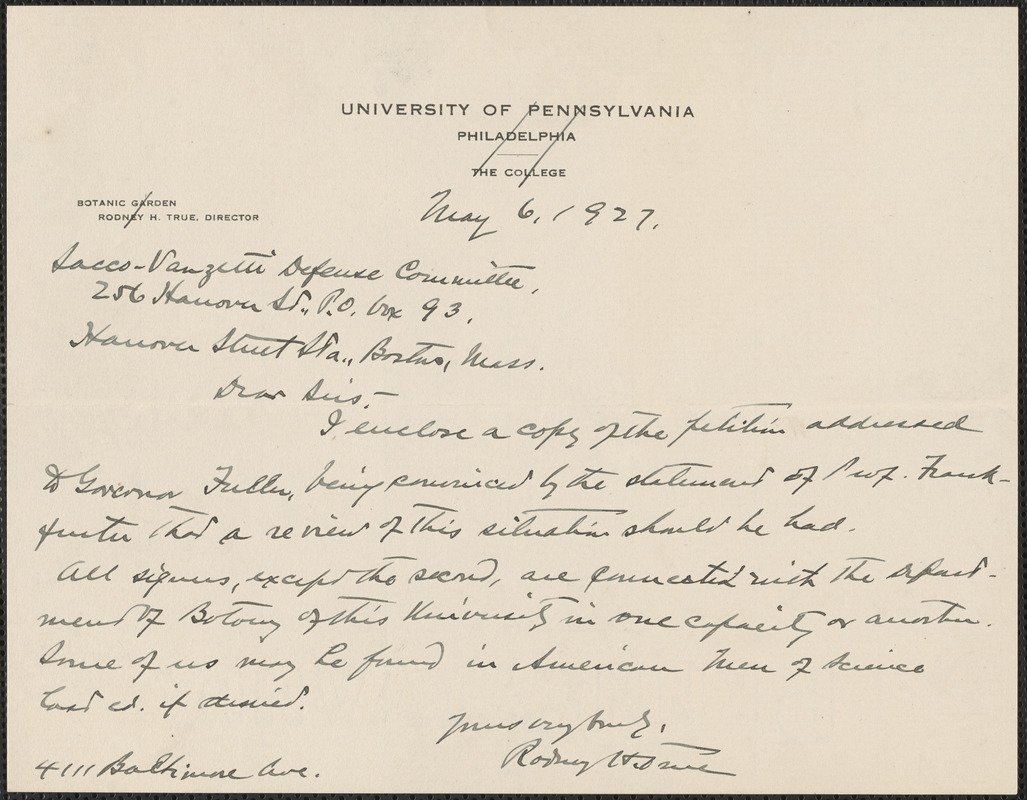 UNIVERSITY OF PENNSYLVANIA
PHILADELPHIA
THE COLLEGE
BOTANIC GARDEN
RODNEY H. TRUE, DIRECTOR
May 6, 1927.
Sacco-Vanzetti Defense Committee,
256 Hanover St., P.O. box 93,
Hanover Street Sta., Boston, Mass.
Dear Sirs,-
I enclose a copy of the petition addressed
to Governor Fuller, being convinced by the statement of Prof. Frank-
furter that a review of this situation should be had.
All signers, except the second, are connected with the Depart-
ment of Botany of this University in one capacity or another.
Some of us may be found in American Men of Science
last ed. if desired.
Yours very truly,
Rodney H. True
4111 Baltimore Ave.